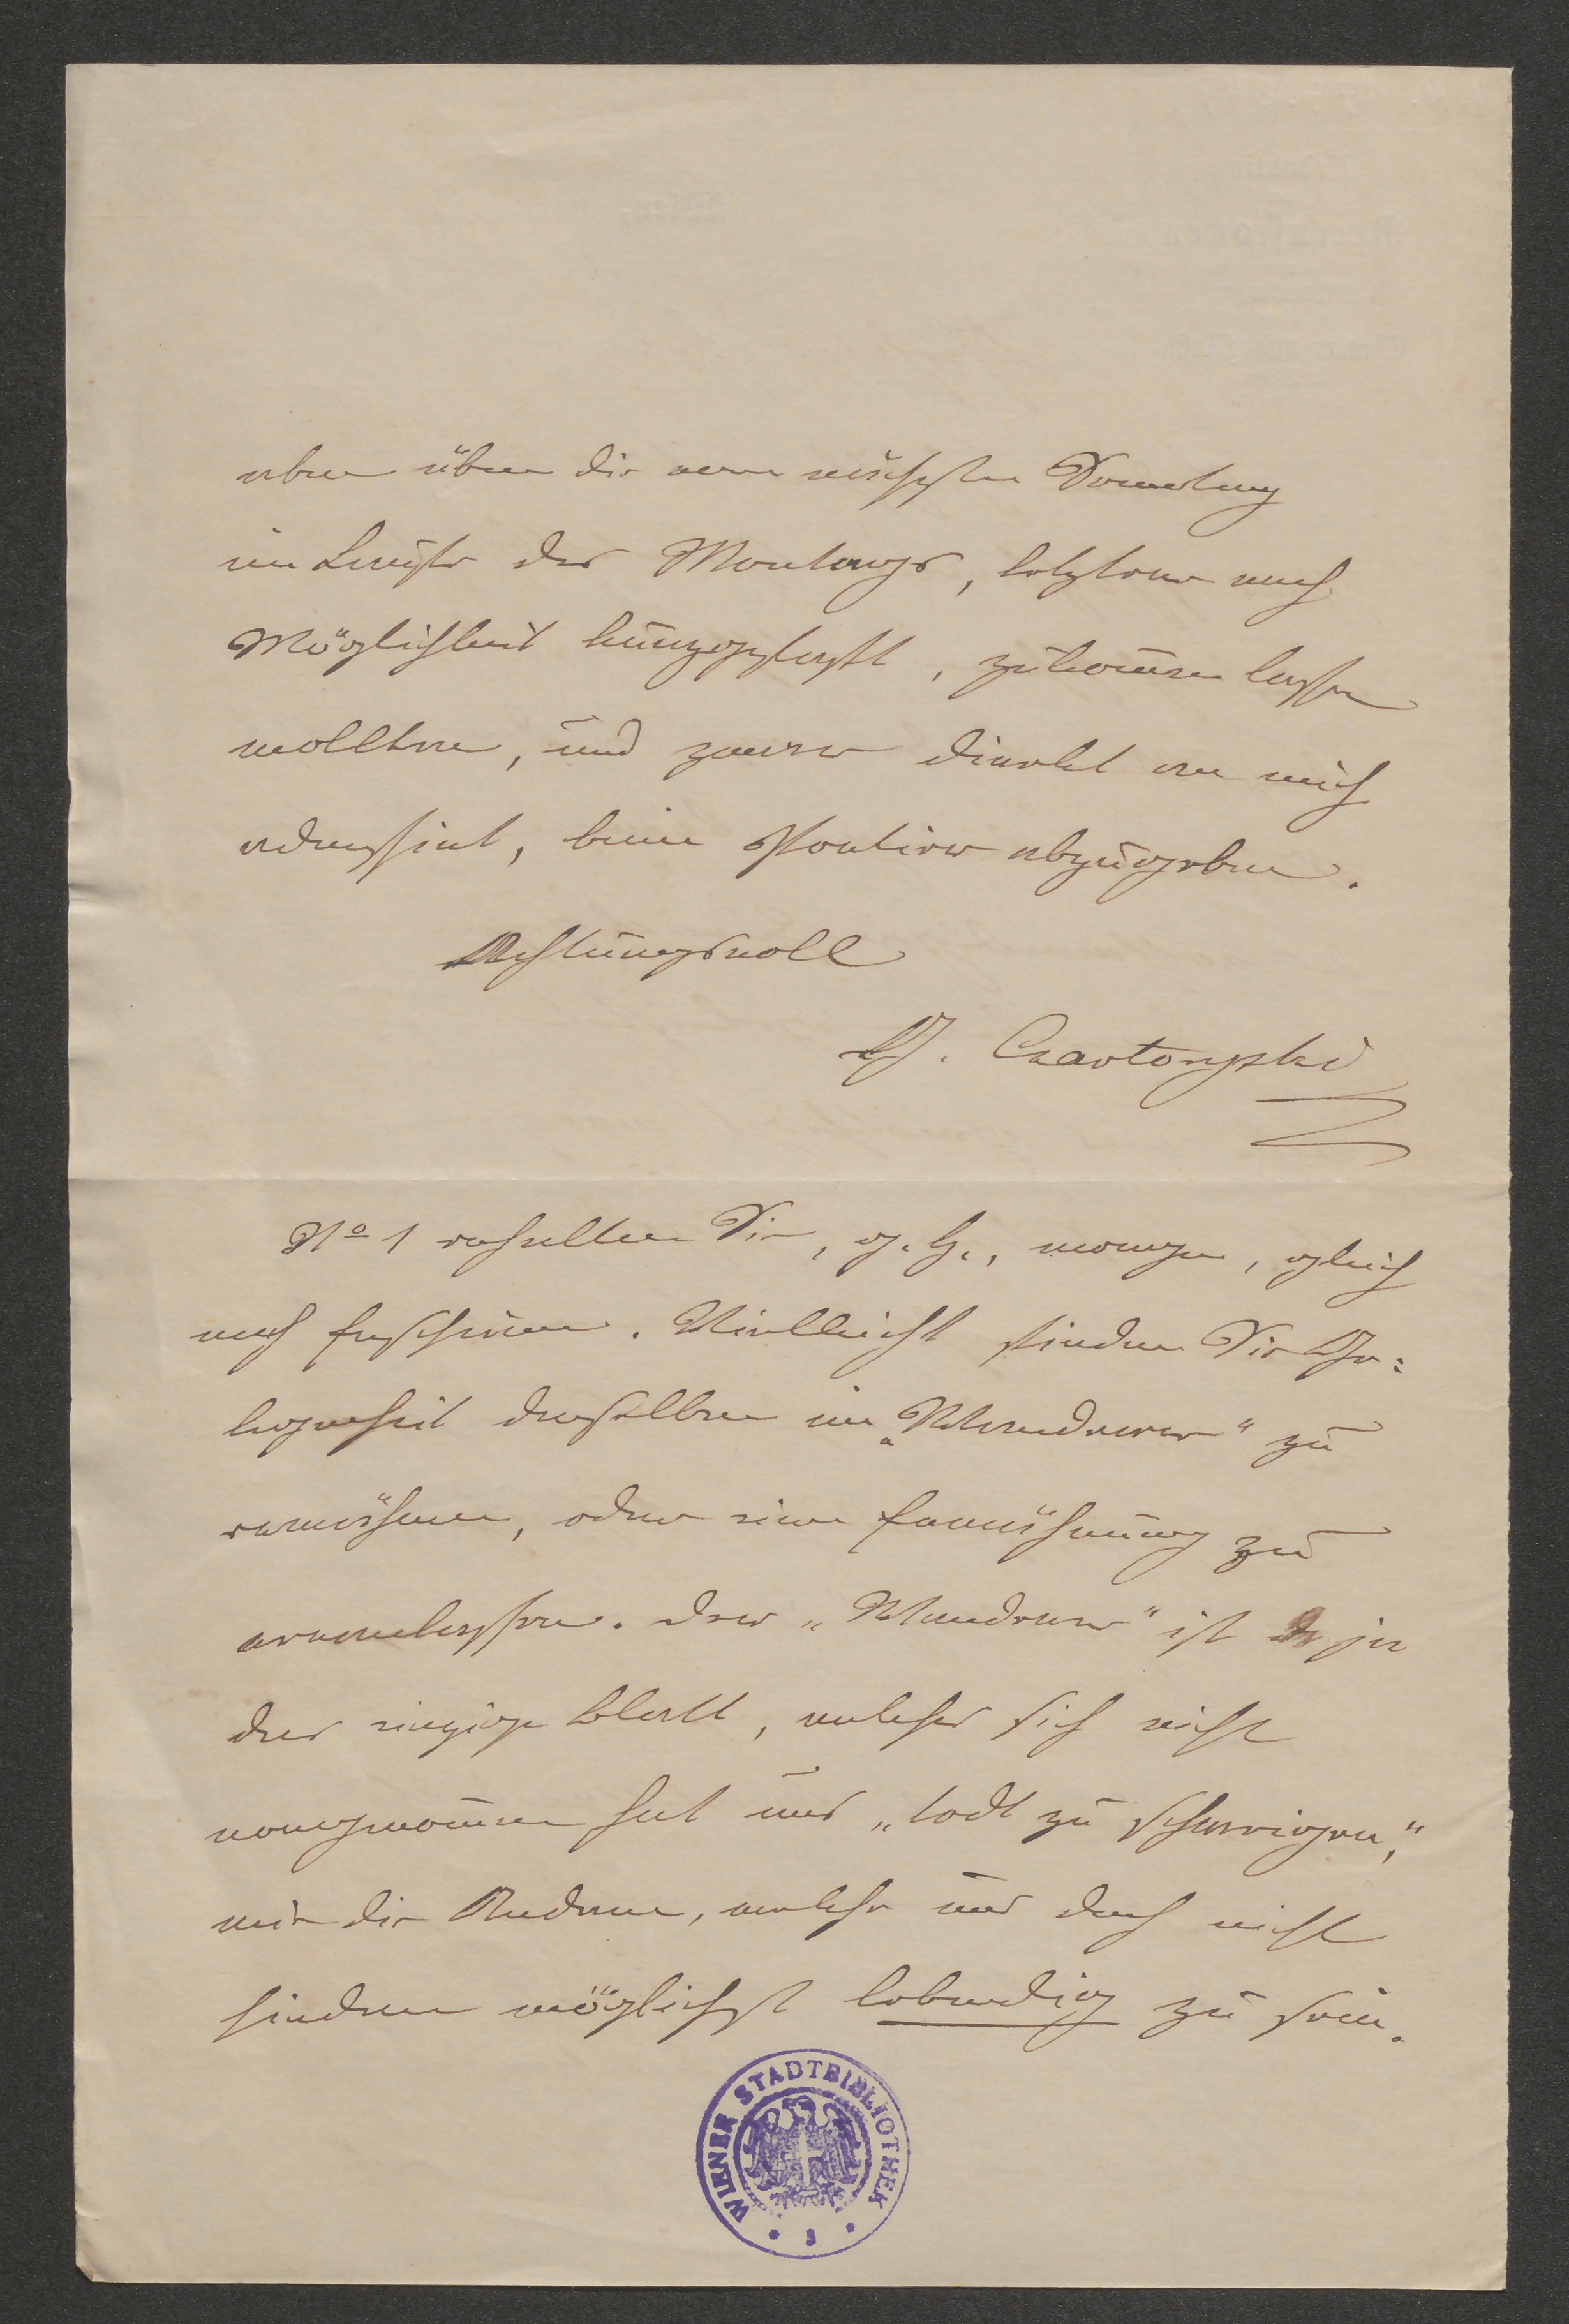 aber über die vom nächsten Sonntag
im Laufe des Montags, letztere nach
Möglichkeit kurzgefaßt, zukommen lassen
wollten, und zwar direkt an mich
adressirt, beim Portier abzugeben.
Achtungsvoll
Czartoryski
No 1 erhalten Sie, g. H., morgen, gleich
nach Erscheinen. Vielleicht finden Sie Ge=
legenheit desselben im „Wanderer“ zu
erwähnen, oder eine Erwähnung zu
veranlassen. Der „Wanderer“ ist ja
das einzige Blatt, welches sich nicht
vorgenommen hat uns „todt zu schweigen,“
wie die Andern, welche uns doch nicht
hindern möglichst lebendig zu sein.
WIENER STADTBIBLIOTHEK